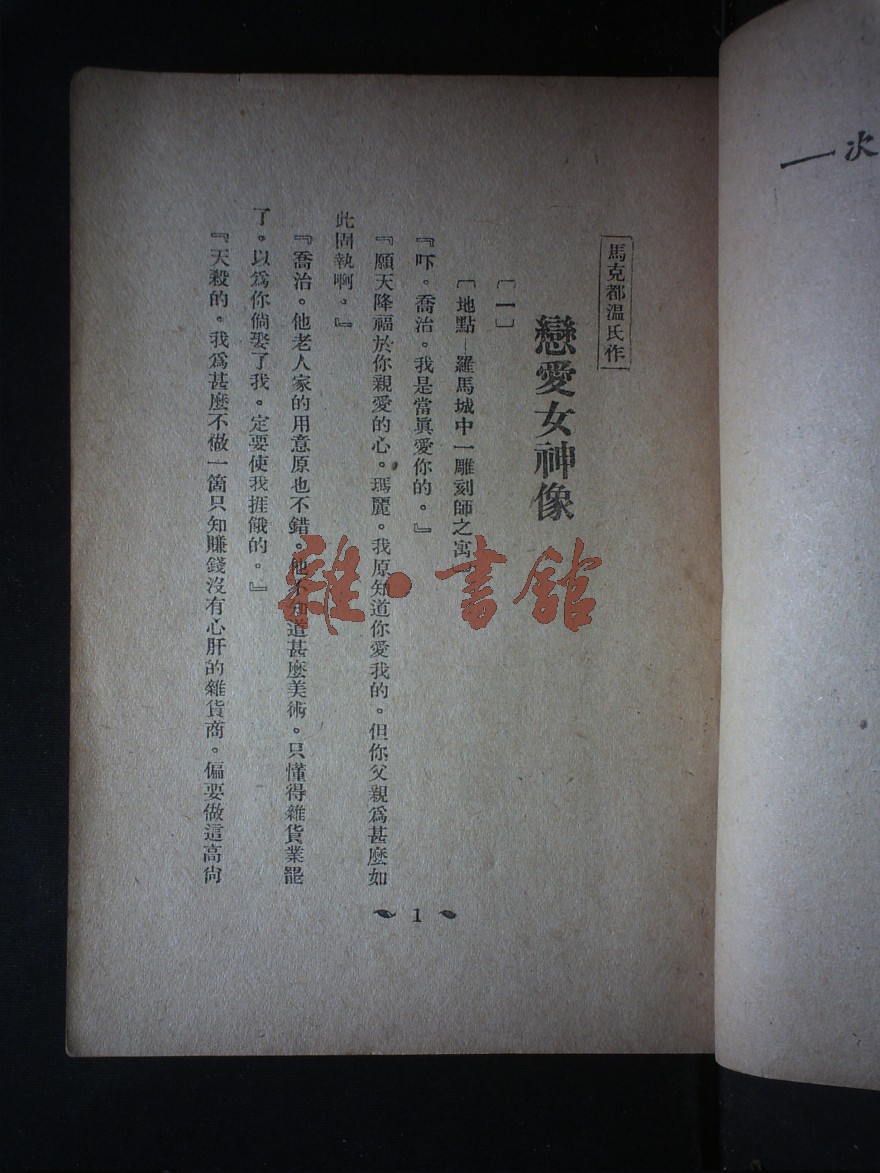 次一
馬克都温氏作
戀愛女神像
〔一〕
〔地點—羅馬城中一雕刻師之寓
『吓。喬治。我是當眞愛你的。』
『願天降福於你親愛的心。瑪麗。我原知道你愛我的。但你父親爲甚麼如
此固執啊。』
『喬治。他老人家的用意原也不錯。他不知道甚麼美術。只懂得雜貨業罷
了。以爲你倘娶了我。定要使我捱餓的。』
『天殺的。我爲甚麼不做一箇只知賺錢沒有心肝的雜貨商。偏要做這高尙
1
雜·書館